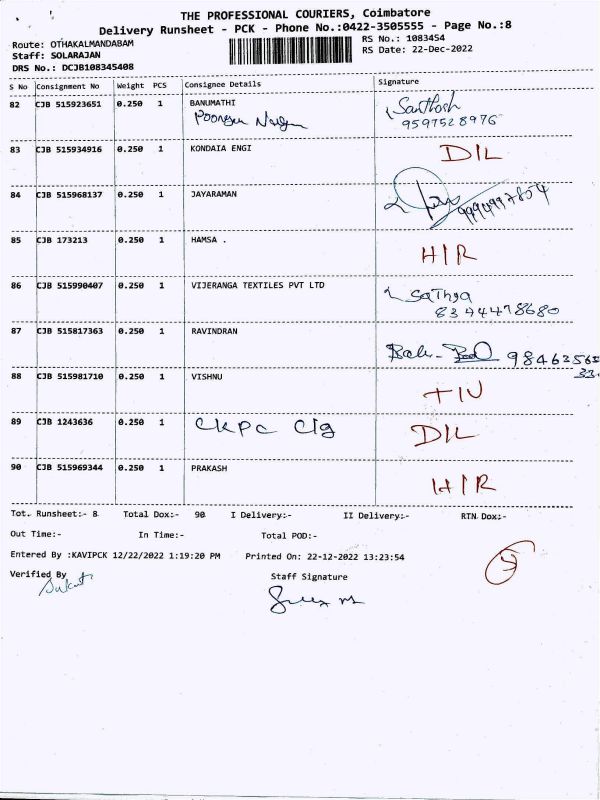 THE PROFESSIONAL COURIERS, Coimbatore
Delivery Runsheet - PCK - Phone No.:0422-3505555 - Page No.:8
Route: OTHAKALMANDABAM RS No.: 1083454
Staff: SOLARAJAN RS Date: 22-Dec-2022
DRS No.: DCJB108345408
S No Consignment No Weight PCS Consignee Details Signature
82 CJB 515923651 0.250 1 BANUMATHI Santhosh
9597528976
83 CJB 515934916 0.250 1 KONDAIA ENGI D/L
84 CJB 515968137 0.250 1 JAYARAMAN
85 CJB 173213 0.250 1 HAMSA . H/R
86 CJB 515990407 0.250 1 VIJERANGA TEXTILES PVT LTD Sathya
8344478680
87 CJB 515817363 0.250 1 RAVINDRAN
88 CJB 515981710 0.250 1 VISHNU
89 CJB 1243636 0.250 1 CKPC Clg D/L
90 CJB 515969344 0.250 1 PRAKASH H/R
Tot. Runsheet:- 8 Total Dox:- 90 I Delivery:- II Delivery:- RTN Dox:-
Out Time:- In Time:- Total POD:-
Entered By :KAVIPCK 12/22/2022 1:19:20 PM Printed On: 22-12-2022 13:23:54
Verified By Staff Signature
5